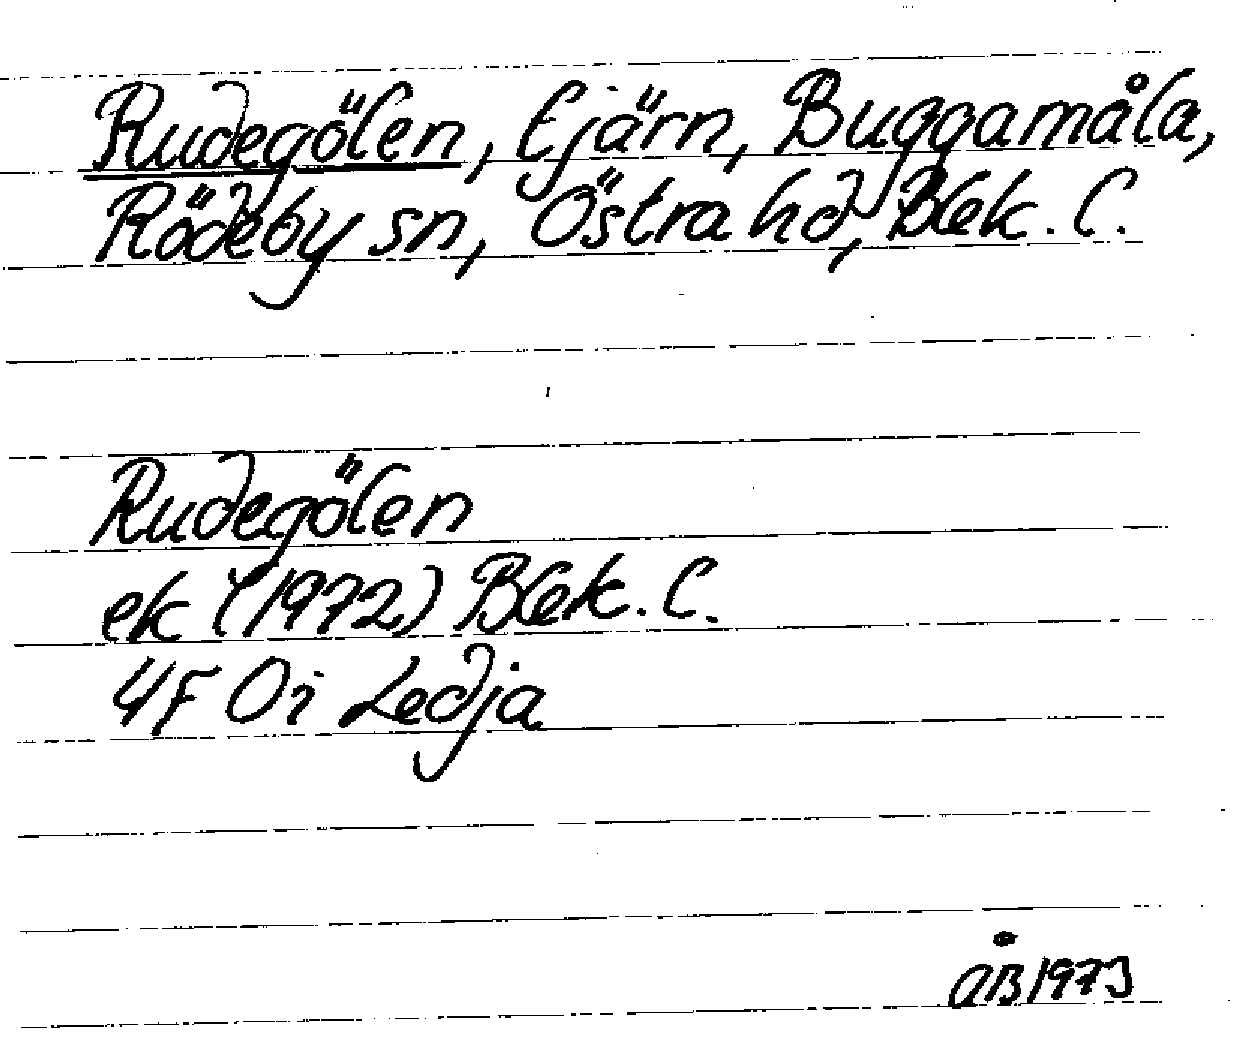 Rudegölen, Ejärn, Buggamåla,
Rödeby sn, Östra hd, Blek. l.
Rudegölen
ek (1972) Blek. l.
4F 0i Ledja
åB 1973